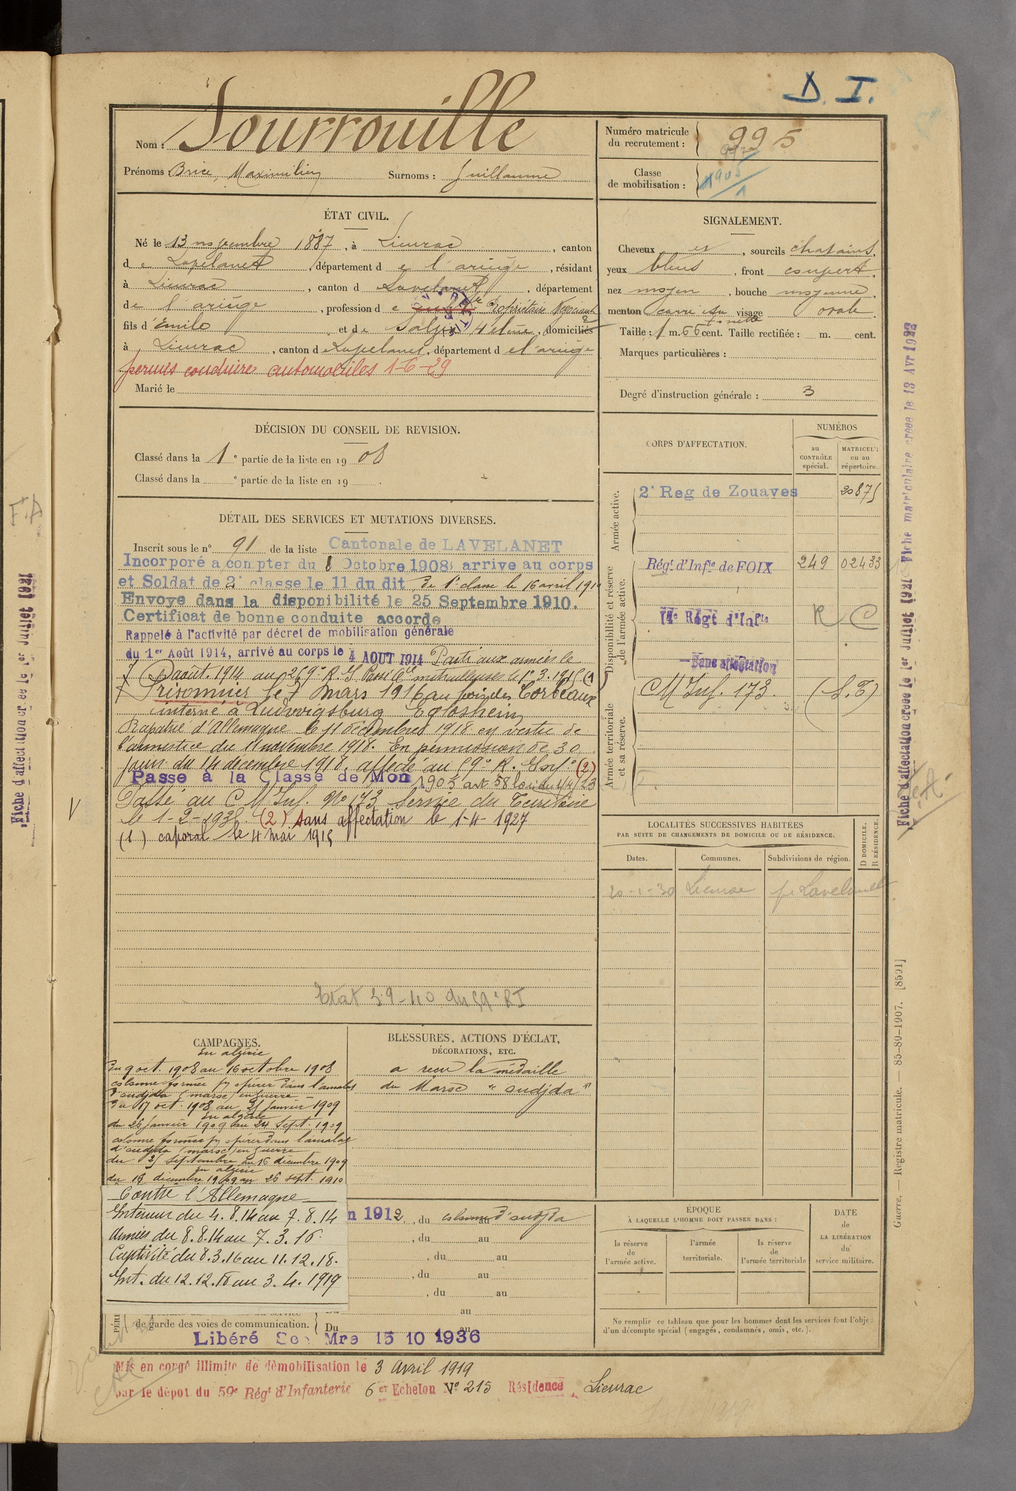 D. I.
Nom : Sourrouille
Prénoms Brice, Maximilien Surnoms : Guillaume
Numéro matricule du recrutement : 995
Classe de mobilisation : 1905
ÉTAT CIVIL.
Né le 13 novembre 1887, à Lieurac, canton
de Lavelanet, département de l'ariège, résidant
à Lieurac, canton de Lavelanet, département
de l'ariège, profession de Propriétaire
fils d'Emile et de, domiciliés
à Lieurac, canton de Lavelanet, département de l'ariège
permis conduire automobiles 1-6-29
Marié le
SIGNALEMENT.
Cheveux et, sourcils chatains,
yeux bleus, front couvert,
nez moyen, bouche moyenne,
menton visage ovale
Taille : 1 m. 66 cent. Taille rectifiée : m. cent.
Marques particulières :
Degré d'instruction générale : 3
DÉCISION DU CONSEIL DE REVISION.
Classé dans la 1e partie de la liste en 1908
Classé dans la e partie de la liste en 19
DÉTAIL DES SERVICES ET MUTATIONS DIVERSES.
Inscrit sous le n° 91 de la liste Cantonale de LAVELANET
Incorporé a compter du 8 Octobre 1908 arrive au corps
et Soldat de 2e classe le 11 du dit, de 1e classe le 16 avril 1910
Envoyé dans la disponibilité le 25 Septembre 1910.
Certificat de bonne conduite accordé
Rappelé à l'activité par décret de mobilisation générale
du 1er Août 1914, arrivé au corps le 4 AOUT 1914 Parti aux armées le
août 1914 au R. I. Passé Cie mitrailleuses le 1.3.1915 (1)
Prisonnier le 7 mars 1916 au bois des Corbeaux
interné à Ludwigsburg Eglosheim
Rapatrié d'Allemagne le 11 décembre 1918 en vertu de
l'armistice du 11 novembre 1918. En permission de 30
jours du 14 décembre 1918. affecté au 59e R. Inf. (2)
Passé à la Classe de Mon 1905 art 58 loi du 1/4/23
Passé au C M Inf. No 173 Service du Territoire
le (2) sans affectation le 1-4-1927
(1) caporal le 4 mai 1915
Etat 39-40 du R I
CORPS D'AFFECTATION.
NUMÉROS
au CONTRÔLE spécial.
MATRICULE ou au répertoire.
Armée active.
2e Reg de Zouaves
Disponibilité et réserve de l'armée active.
Régt d'Infie de FOIX 249 02433
14e Régt d'Infie R C
Sans affectation
Armée territoriale et sa réserve.
C M Inf. 173. (S.T)
LOCALITÉS SUCCESSIVES HABITÉES
PAR SUITE DE CHANGEMENTS DE DOMICILE OU DE RÉSIDENCE.
Dates. Communes. Subdivisions de région. D DOMICILE. R RÉSIDENCE.
20-1-30 Lieurac
CAMPAGNES.
En algérie
du 9 oct. 1908 au 16 octobre 1908
colonne formée pr opérer dans l'amalat
d'oudjda (maroc) en guerre
du 17 oct. 1908 au 25 janvier 1909
En algérie
du 26 janvier 1909 au 24 sept. 1909
colonne formée pr opérer dans l'amalat
d'oudjda (maroc) en guerre
du 25 septembre au décembre 1909
en algérie
du décembre 1909 au 25 sept. 1910
Contre l'Allemagne
Intérieur du 4.8.14 au 7.8.14
Armées du 8.8.14 au 7.3.16
Captivité du 8.3.16 au 11.12.18.
Int. du 12.12.18 au 3.4.1919
BLESSURES, ACTIONS D'ÉCLAT,
DÉCORATIONS, ETC.
a reçu la médaille
du Maroc "oudjda"
n 1912, du au
, du au
, du au
, du au
, du au
au
de garde des voies de communication. Du au
Libéré Mre 15 10 1936
ÉPOQUE
À LAQUELLE L'HOMME DOIT PASSER DANS :
la réserve de l'armée active.
l'armée territoriale.
la réserve de l'armée territoriale
DATE
de
LA LIBÉRATION
du
service militaire.
Ne remplir ce tableau que pour les hommes dont les services font l'objet
d'un décompte spécial (engagés, condamnés, omis, etc.).
Mis en congé illimité de démobilisation le 3 avril 1919
par le dépôt du 59e Régt d'Infanterie 6er Echelon No 215 Résidence Lieurac
Fiche d'affectation créée le 1er Juillet 1921 Fiche matriculaire créée le 13 Avr
Guerre. — Registre matricule. — 85-89-1907. [8591]
F.A
V